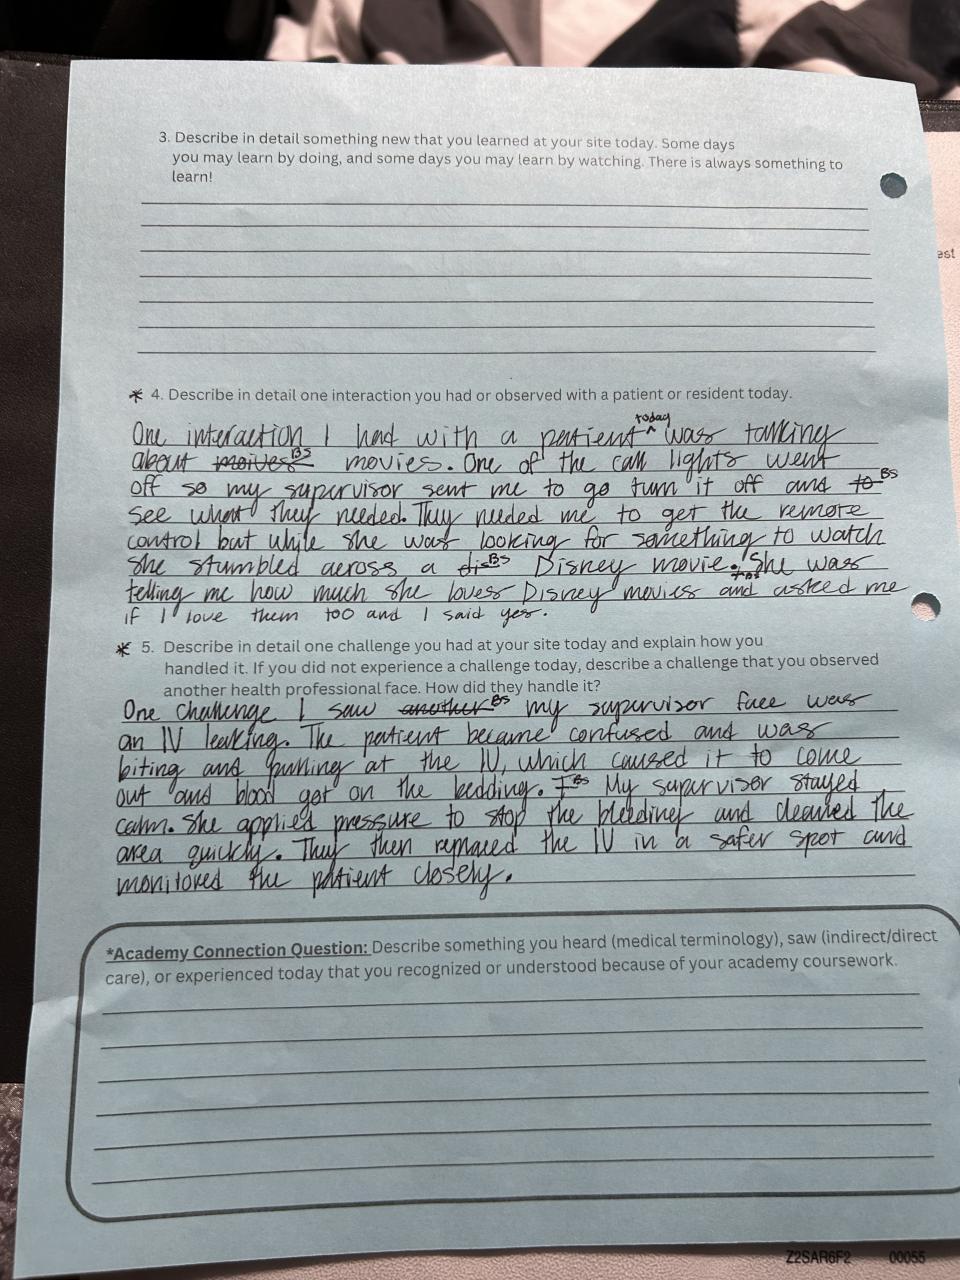 3. Describe in detail something new that you learned at your site today. Some days
you may learn by doing, and some days you may learn by watching. There is always something to
learn!
est
* 4. Describe in detail one interaction you had or observed with a patient or resident today.
today
One interaction I had with a patient ^ was talking
about moives BS movies. One of the call lights went
off so my supervisor sent me to go turn it off and to BS
see what they needed. They needed me to get the remote
control but while she was looking for something to watch
she stumbled across a dis BS Disney movie. She was
telling me how much she loves Disney movies and asked me
if I love them too and I said yes.
* 5. Describe in detail one challenge you had at your site today and explain how you
handled it. If you did not experience a challenge today, describe a challenge that you observed
another health professional face. How did they handle it?
One challenge I saw another BS my supervisor face was
an IV leaking. The patient became confused and was
biting and pulling at the IV, which caused it to come
out and blood got on the bedding. I BS My supervisor stayed
calm. She applied pressure to stop the bleeding and cleaned the
area quickly. They then replaced the IV in a safer spot and
monitored the patient closely.
*Academy Connection Question: Describe something you heard (medical terminology), saw (indirect/direct
care), or experienced today that you recognized or understood because of your academy coursework.
Z2SAR6F2 00055